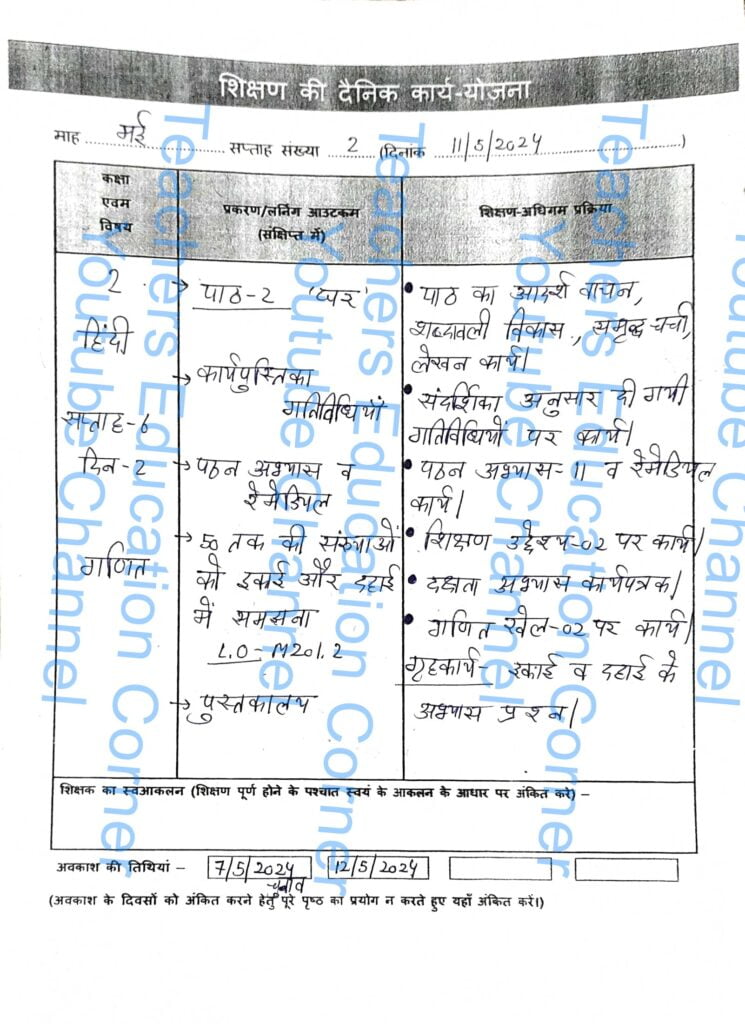 शिक्षण की दैनिक कार्य-योजना
माह मई सप्ताह संख्या 2 (दिनांक 11/5/2024)
कक्षा
एवम
विषय
प्रकरण/लर्निंग आउटकम
(संक्षिप्त में)
शिक्षण-अधिगम प्रक्रिया
2
हिंदी
सप्ताह-6
दिन-2
गणित
→ पाठ-2 'घर'
→ कार्यपुस्तिका
गतिविधियाँ
→ पठन अभ्यास व
रेमेडियल
→ 50 तक की संख्याओं
को इकाई और दहाई
में समझना
L.O-M201.2
→ पुस्तकालय
• पाठ का आदर्श वाचन,
शब्दावली विकास, समृद्ध चर्चा,
लेखन कार्य।
• संदर्शिका अनुसार दी गयी
गतिविधियों पर कार्य।
• पठन अभ्यास-11 व रेमेडियल
कार्य।
• शिक्षण उद्देश्य-02 पर कार्य।
• दक्षता अभ्यास कार्यपत्रक।
• गणित खेल-02 पर कार्य।
गृहकार्य- इकाई व दहाई के
अभ्यास प्रश्न।
शिक्षक का स्वआकलन (शिक्षण पूर्ण होने के पश्चात स्वयं के आकलन के आधार पर अंकित करे) –
अवकाश की तिथियां – 7/5/2024 12/5/2024
चुनाव
(अवकाश के दिवसों को अंकित करने हेतु पूरे पृष्ठ का प्रयोग न करते हुए यहाँ अंकित करें।)
Teachers Education Corner
Youtube Channel
Teachers Education Corner
Youtube Channel
Teachers Education Corner
Youtube Channel